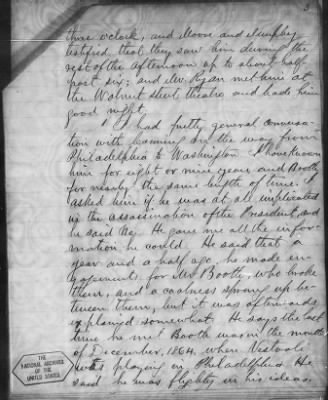 three o'clock, and Moore and Murphy
testified that they saw him during the
rest of the afternoon up to about half
past six; and Mr. Ryan met him at
the Walnut street theatre and bade him
good night.
I had pretty general conversa-
tion with coming on the way from
Philadelphia to Washington. I have known
him for eight or nine years, and Booth
for nearly the same length of time. I
asked him if he was at all implicated
in the assassination of the President, and
he said No. He gave me all the infor-
mation he could. He said that a
year and a half ago, he made en-
gagements for Mr Booth, who broke
them, and a coolness sprung up be-
tween them, but it was afterwards
explained somewhat. He says the last
time he met Booth was in the month
of December, 1864, where Vestvali
was playing in Philadelphia. He
said he was flighty in his ideas,
THE
NATIONAL ARCHIVES
OF THE
UNITED STATES